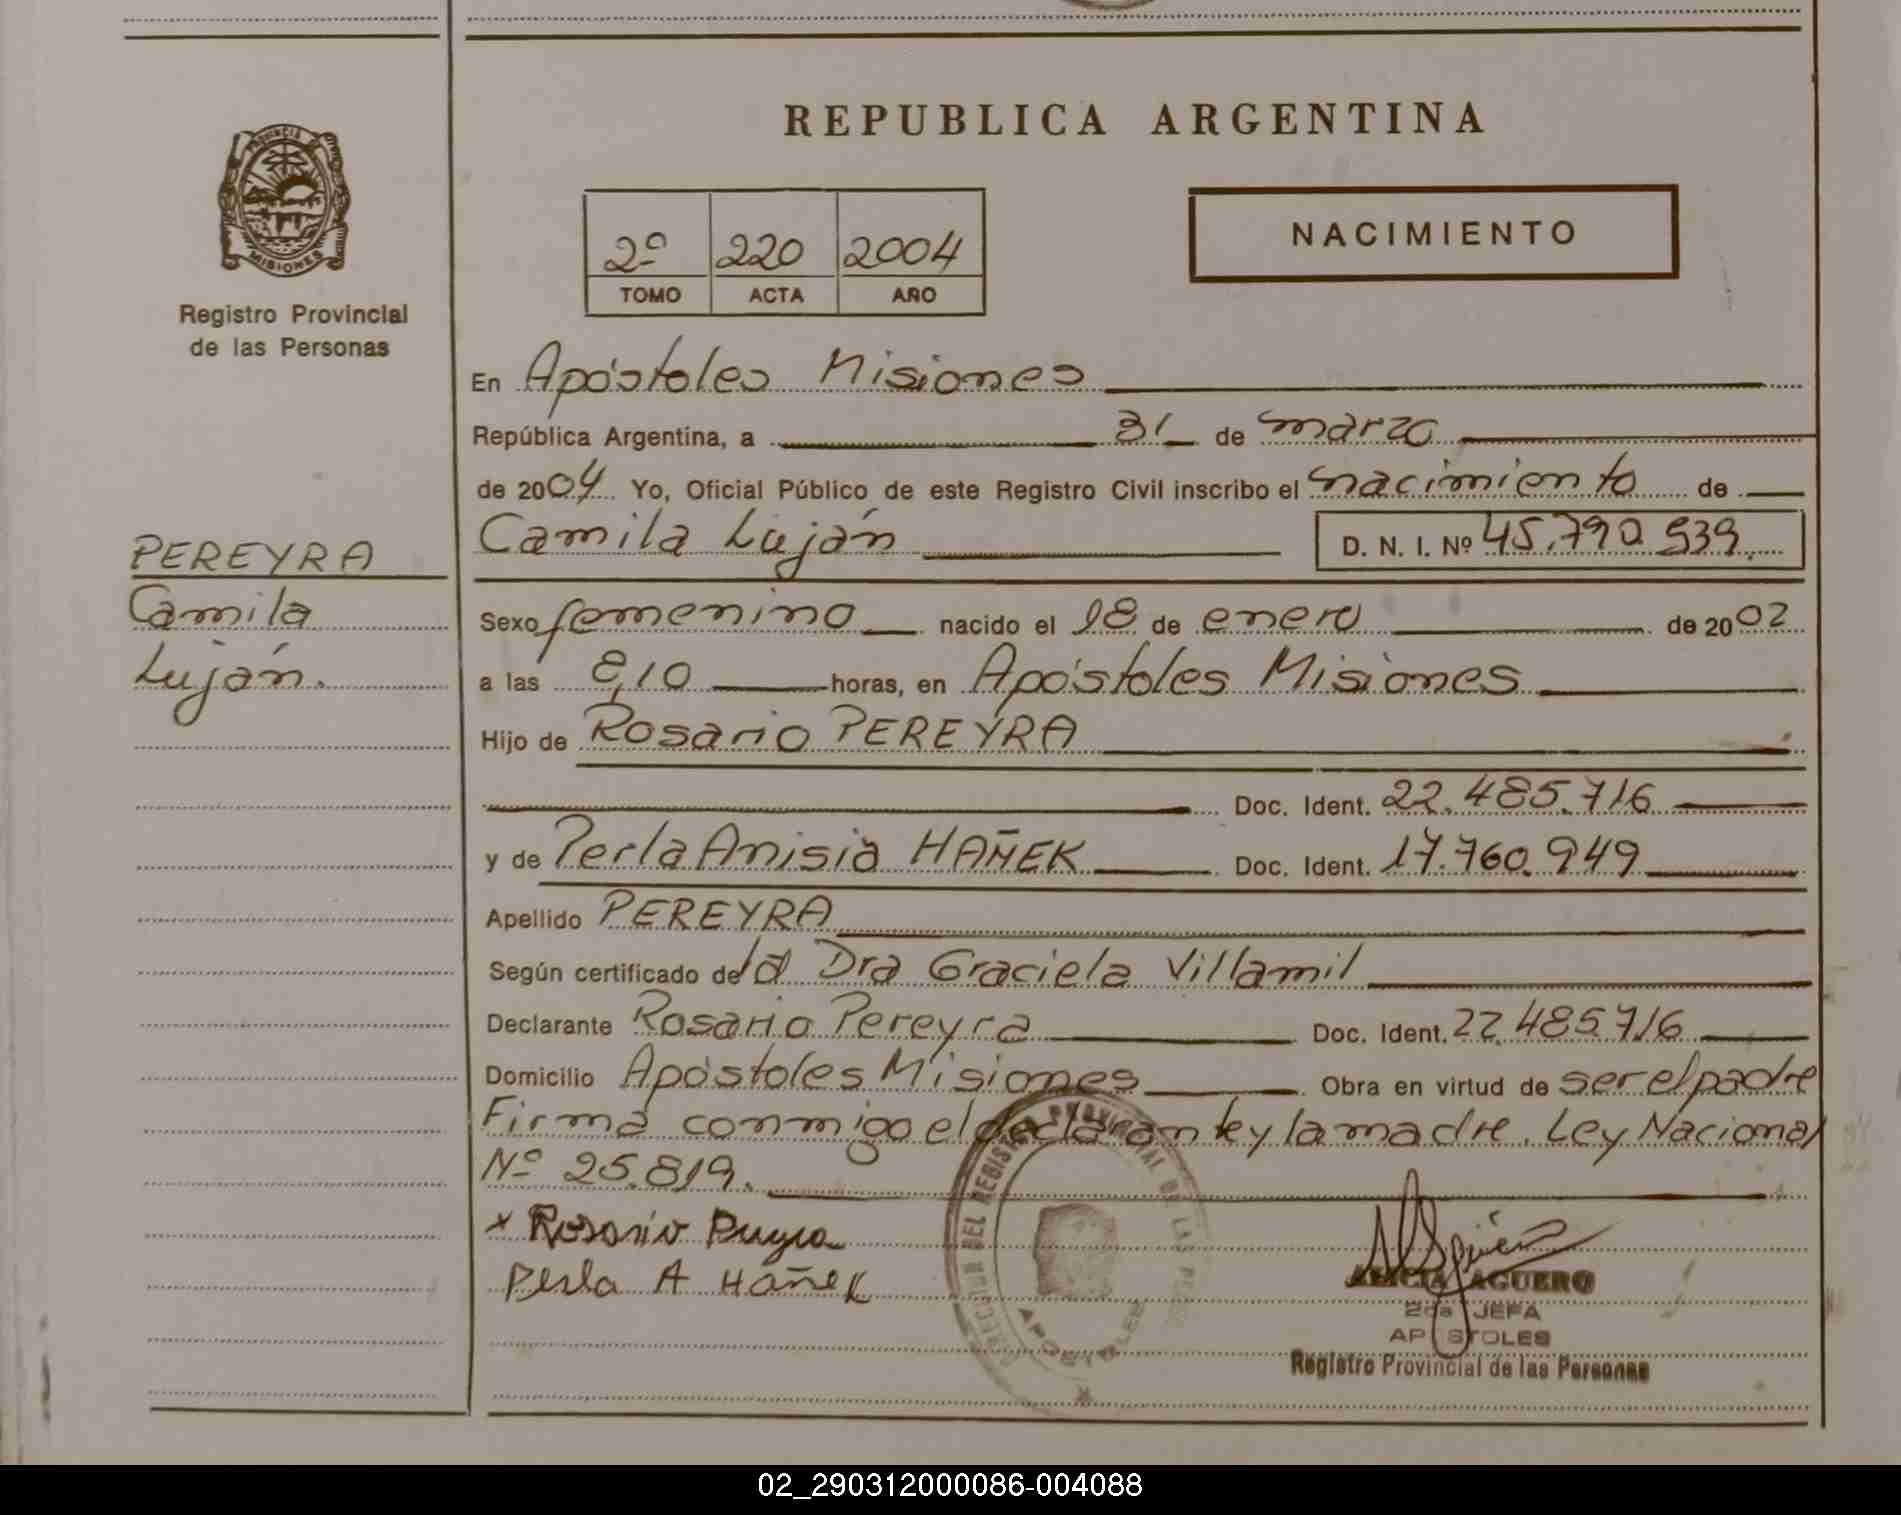 REPUBLICA ARGENTINA
PROVINCIA
MISIONES
Registro Provincial
de las Personas
2º 220 2004
TOMO ACTA AÑO
NACIMIENTO
En Apóstoles Misiones
República Argentina, a 31 de marzo
de 2004 Yo, Oficial Público de este Registro Civil inscribo el nacimiento de
Camila Luján D. N. I. Nº 45.790.939.
PEREYRA
Camila
Luján.
Sexo femenino nacido el 18 de enero de 2002
a las 8,10 horas, en Apóstoles Misiones
Hijo de Rosario PEREYRA
Doc. Ident. 22.485.716
y de Perla Anisia HAÑEK Doc. Ident. 17.760.949
Apellido PEREYRA
Según certificado de la Dra Graciela Villamil
Declarante Rosario Pereyra Doc. Ident. 22.485.716
Domicilio Apóstoles Misiones Obra en virtud de ser el padre
Firma conmigo el declarante y la madre. Ley Nacional
Nº 25.819.
x Rosario Pereyra
Perla A Hañek
DEL REGISTRO PROVINCIAL DE LAS
APOSTOLES
ALICIA AGUERO
2da JEFA
APOSTOLES
Registro Provincial de las Personas
02_290312000086-004088